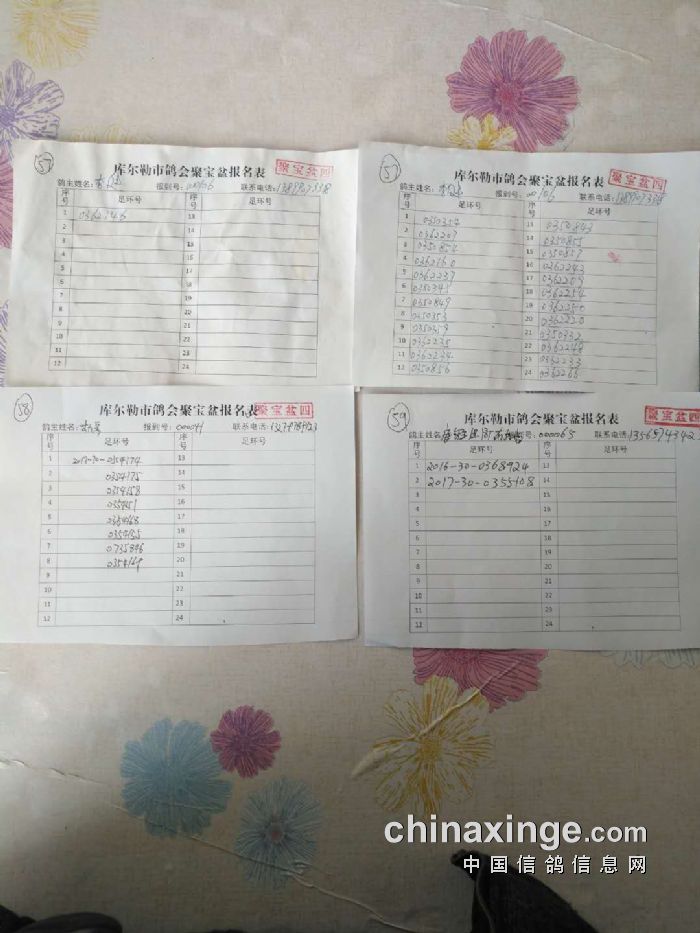 57
聚宝盆四
库尔勒市鸽会聚宝盆报名表
鸽主姓名: 报到号: 00106 联系电话:
序号 足环号 序号 足环号
1 0362246 13
2 14
3 15
4 16
5 17
6 18
7 19
8 20
9 21
10 22
11 23
12 24
57
聚宝盆四
库尔勒市鸽会聚宝盆报名表
鸽主姓名: 报到号: 00106 联系电话:
序号 足环号 序号 足环号
1 0350354 13 0350843
2 0362207 14 0350855
3 15 0350857
4 16 0362243
5 0362237 17 0362209
6 0350345 18 0362254
7 0350849 19 0362250
8 0350353 20 0362220
9 0350359 21 0350332
10 0362235 22 0362248
11 0362234 23 0362233
12 0350856 24 0362266
58
聚宝盆四
库尔勒市鸽会聚宝盆报名表
鸽主姓名: 报到号: 联系电话:
序号 足环号 序号 足环号
1 2017-30-0354174 13
2 0354175 14
3 0354158 15
4 16
5 0354168 17
6 18
7 0735846 19
8 0354169 20
9 21
10 22
11 23
12 24
59
聚宝盆四
库尔勒市鸽会聚宝盆报名表
鸽主姓名: 号: 000065 联系电话: 13565743422
序号 足环号 序号 足环号
1 2016-30-0368924 13
2 2017-30-0355108 14
3 15
4 16
5 17
6 18
7 19
8 20
9 21
10 22
11 23
12 24
chinaxinge.com
中国信鸽信息网